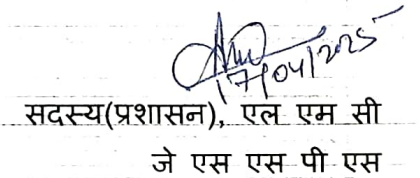 17/04/2025
सदस्य(प्रशासन), एल एम सी
जे एस एस पी एस